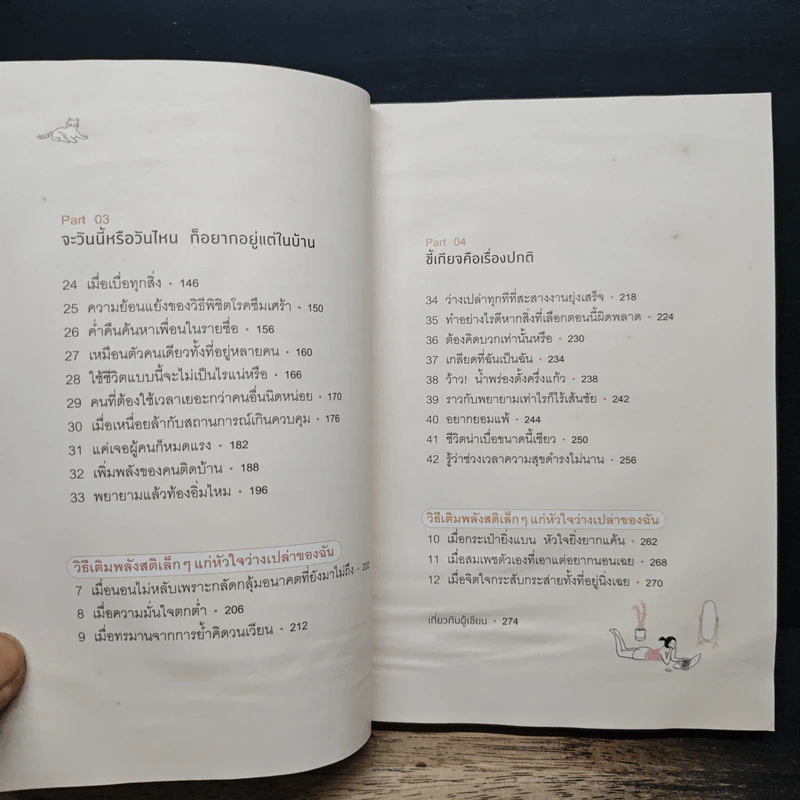 Part 03
จะวันนี้หรือวันไหน ก็อยากอยู่แต่ในบ้าน
24 เมื่อเบื่อทุกสิ่ง • 146
25 ความย้อนแย้งของวิธีพิชิตโรคซึมเศร้า • 150
26 ค่ำคืนค้นหาเพื่อนในรายชื่อ • 156
27 เหมือนตัวคนเดียวทั้งที่อยู่หลายคน • 160
28 ใช้ชีวิตแบบนี้จะไม่เป็นไรแน่หรือ • 166
29 คนที่ต้องใช้เวลาเยอะกว่าคนอื่นนิดหน่อย • 170
30 เมื่อเหนื่อยล้ากับสถานการณ์เกินควบคุม • 176
31 แค่เจอผู้คนก็หมดแรง • 182
32 เพิ่มพลังของคนติดบ้าน • 188
33 พยายามแล้วท้องอิ่มไหม • 196
วิธีเติมพลังสติเล็กๆ แก่หัวใจว่างเปล่าของฉัน
7 เมื่อนอนไม่หลับเพราะกลัดกลุ้มอนาคตที่ยังมาไม่ถึง • 202
8 เมื่อความมั่นใจตกต่ำ • 206
9 เมื่อทรมานจากการย้ำคิดวนเวียน • 212
Part 04
ขี้เกียจคือเรื่องปกติ
34 ว่างเปล่าทุกทีที่สะสางงานยุ่งเสร็จ • 218
35 ทำอย่างไรดีหากสิ่งที่เลือกตอนนี้ผิดพลาด • 224
36 ต้องคิดบวกเท่านั้นหรือ • 230
37 เกลียดที่ฉันเป็นฉัน • 234
38 ว้าว! น้ำพร่องตั้งครึ่งแก้ว • 238
39 ราวกับพยายามเท่าไรก็ไร้เส้นชัย • 242
40 อยากยอมแพ้ • 244
41 ชีวิตน่าเบื่อขนาดนี้เชียว • 250
42 รู้ว่าช่วงเวลาความสุขดำรงไม่นาน • 256
วิธีเติมพลังสติเล็กๆ แก่หัวใจว่างเปล่าของฉัน
10 เมื่อกระเป๋ายิ่งแบน หัวใจยิ่งยากแค้น • 262
11 เมื่อสมเพชตัวเองที่เอาแต่อยากนอนเฉย • 268
12 เมื่อจิตใจกระสับกระส่ายทั้งที่อยู่นิ่งเฉย • 270
เกี่ยวกับผู้เขียน • 274